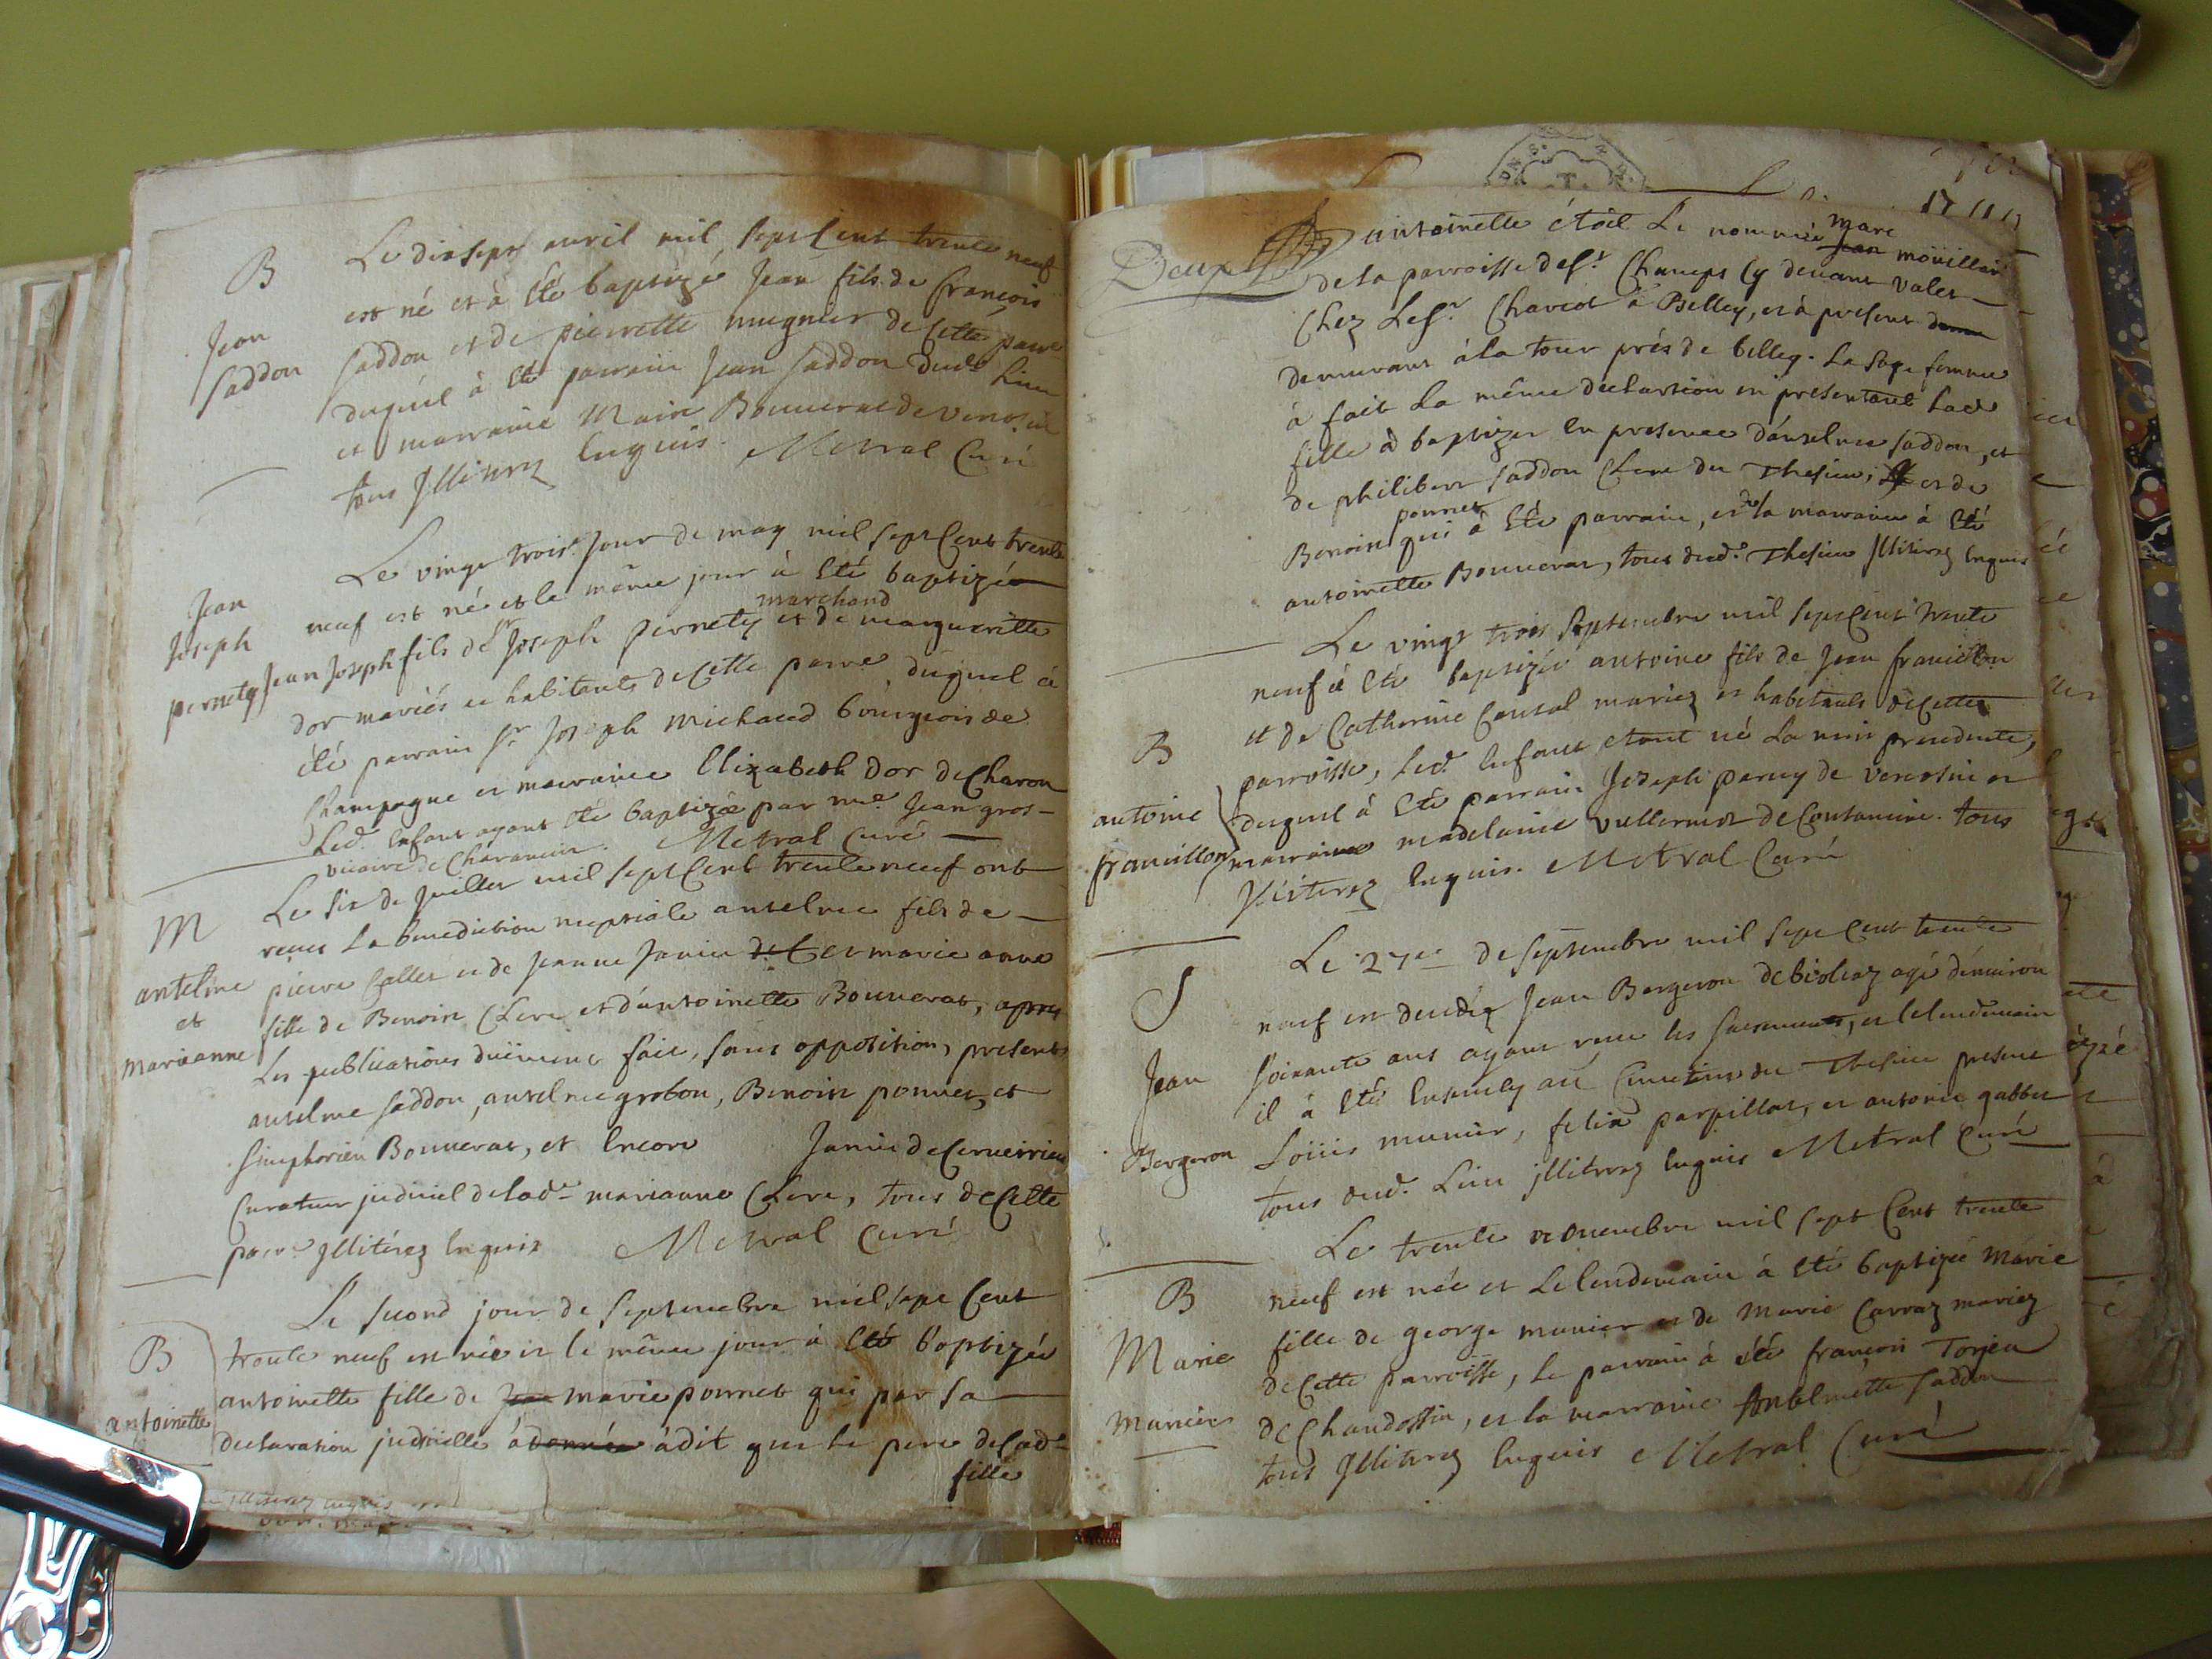 B
Jean
saddon
Le dixsept avril mil sept Cent trente neuf
est né et à Eté baptizé Jean fils de françois
saddon et de pierrette mugnier de Cette parre
duquel à Eté parrain Jean saddon dud. Lieu
et marraine Marie Bonnerat de
tous Jlliterez Enquis. Metral Curé
Jean
Joseph
pernety
Le vingt trois.e Jour de may mil sept Cent trente
neuf est né et le même jour à Eté baptizé
marchand
Jean Joseph fils de sr Joseph pernety et de margueritte
dor mariés et habitants de Cette parre. duquel à
été parrain sr. Joseph Michaud bourgeois de
Champagne et marraine Elizabeth Dor de Charon
Led. Enfant ayant Eté baptizé par mre. Jean gros
vicaire de Charancin. Metral Curé
M
antelme
et
marianne
Le six de Juillet mil sept Cent trente neuf ont
receu La benediction nuptiale antelme fils de
pierre Callet et de Jeanne Janin et marie anne
fille de Benoin Clere et d'antoinette Bonnerat, apres
Les publications duëment fait, sans opposition, presents
antelme saddon, antelme grobon, Benoin ponnet, et
simphorien Bonnerat, et Encore Janin de Cerveirieu
Curateur judiciel de lade. marianne Clere, tous de Cette
parr. Jlliterez Enquis Metral Curé
B
antoinette
Le second jour de septembre mil sept Cent
trente neuf est née et le même jour à Eté baptizée
antoinette fille de Jean marie ponnet qui par sa
declaration judicielle à donnée à dit que le pere de Lade.
fille
Deux
antoinette étoit Le nommé Jean Marc mouillar
de la parroisse de st. Champs Cy devant valet
Chez Le sr. Chavet à Belley, et à present dem
demeurant à la tour prés de belley. La sage femme
à fait La même declartion en presentant Lade
fille à baptizer En presence d'antelme saddon, et
de philibert saddon Clere du Thesieu, et de
Benoin ponnet qui à Eté parrain, et la marraine à Eté
antoinette Bonnerat, tous dud. Thesieu Jlliterez Enquis
B
antoine
francillon
Le vingt trois septembre mil sept Cent trente
neuf à Eté baptizé antoine fils de Jean francillon
et de Catherine Consal mariez et habitants de Cette
parroisse, Led. Enfant etant né La nuit precedente,
duquel à Eté parrain Joseph parcy de et
marraine madelaine vullermet de Contamine. tous
Jlliterez Enquis. Metral Curé
S
Jean
Bergeron
Le 27e de septembre mil sept Cent trente
neuf est decedé Jean Bergeron de bioleaz agé d'environ
soixante ans ayant receu les sacrements, et le lendemain
il à Eté Ensevely au Cimetiere du Thesieu present
Loüis munier, felix parpillat, et antoine gabbet
tous dud. Lieu jlliterez Enquis Metral Curé
B
Marie
munier
Le trente novembre mil sept Cent trente
neuf est née et Le lendemain à Eté baptizée Marie
fille de george munier et de Marie Carraz mariez
de Cette parroisse, le parrain à été françois Torjeu
de Chandossin, et la marraine Antelmette saddon
tous Jlliterez Enquis Metral Curé